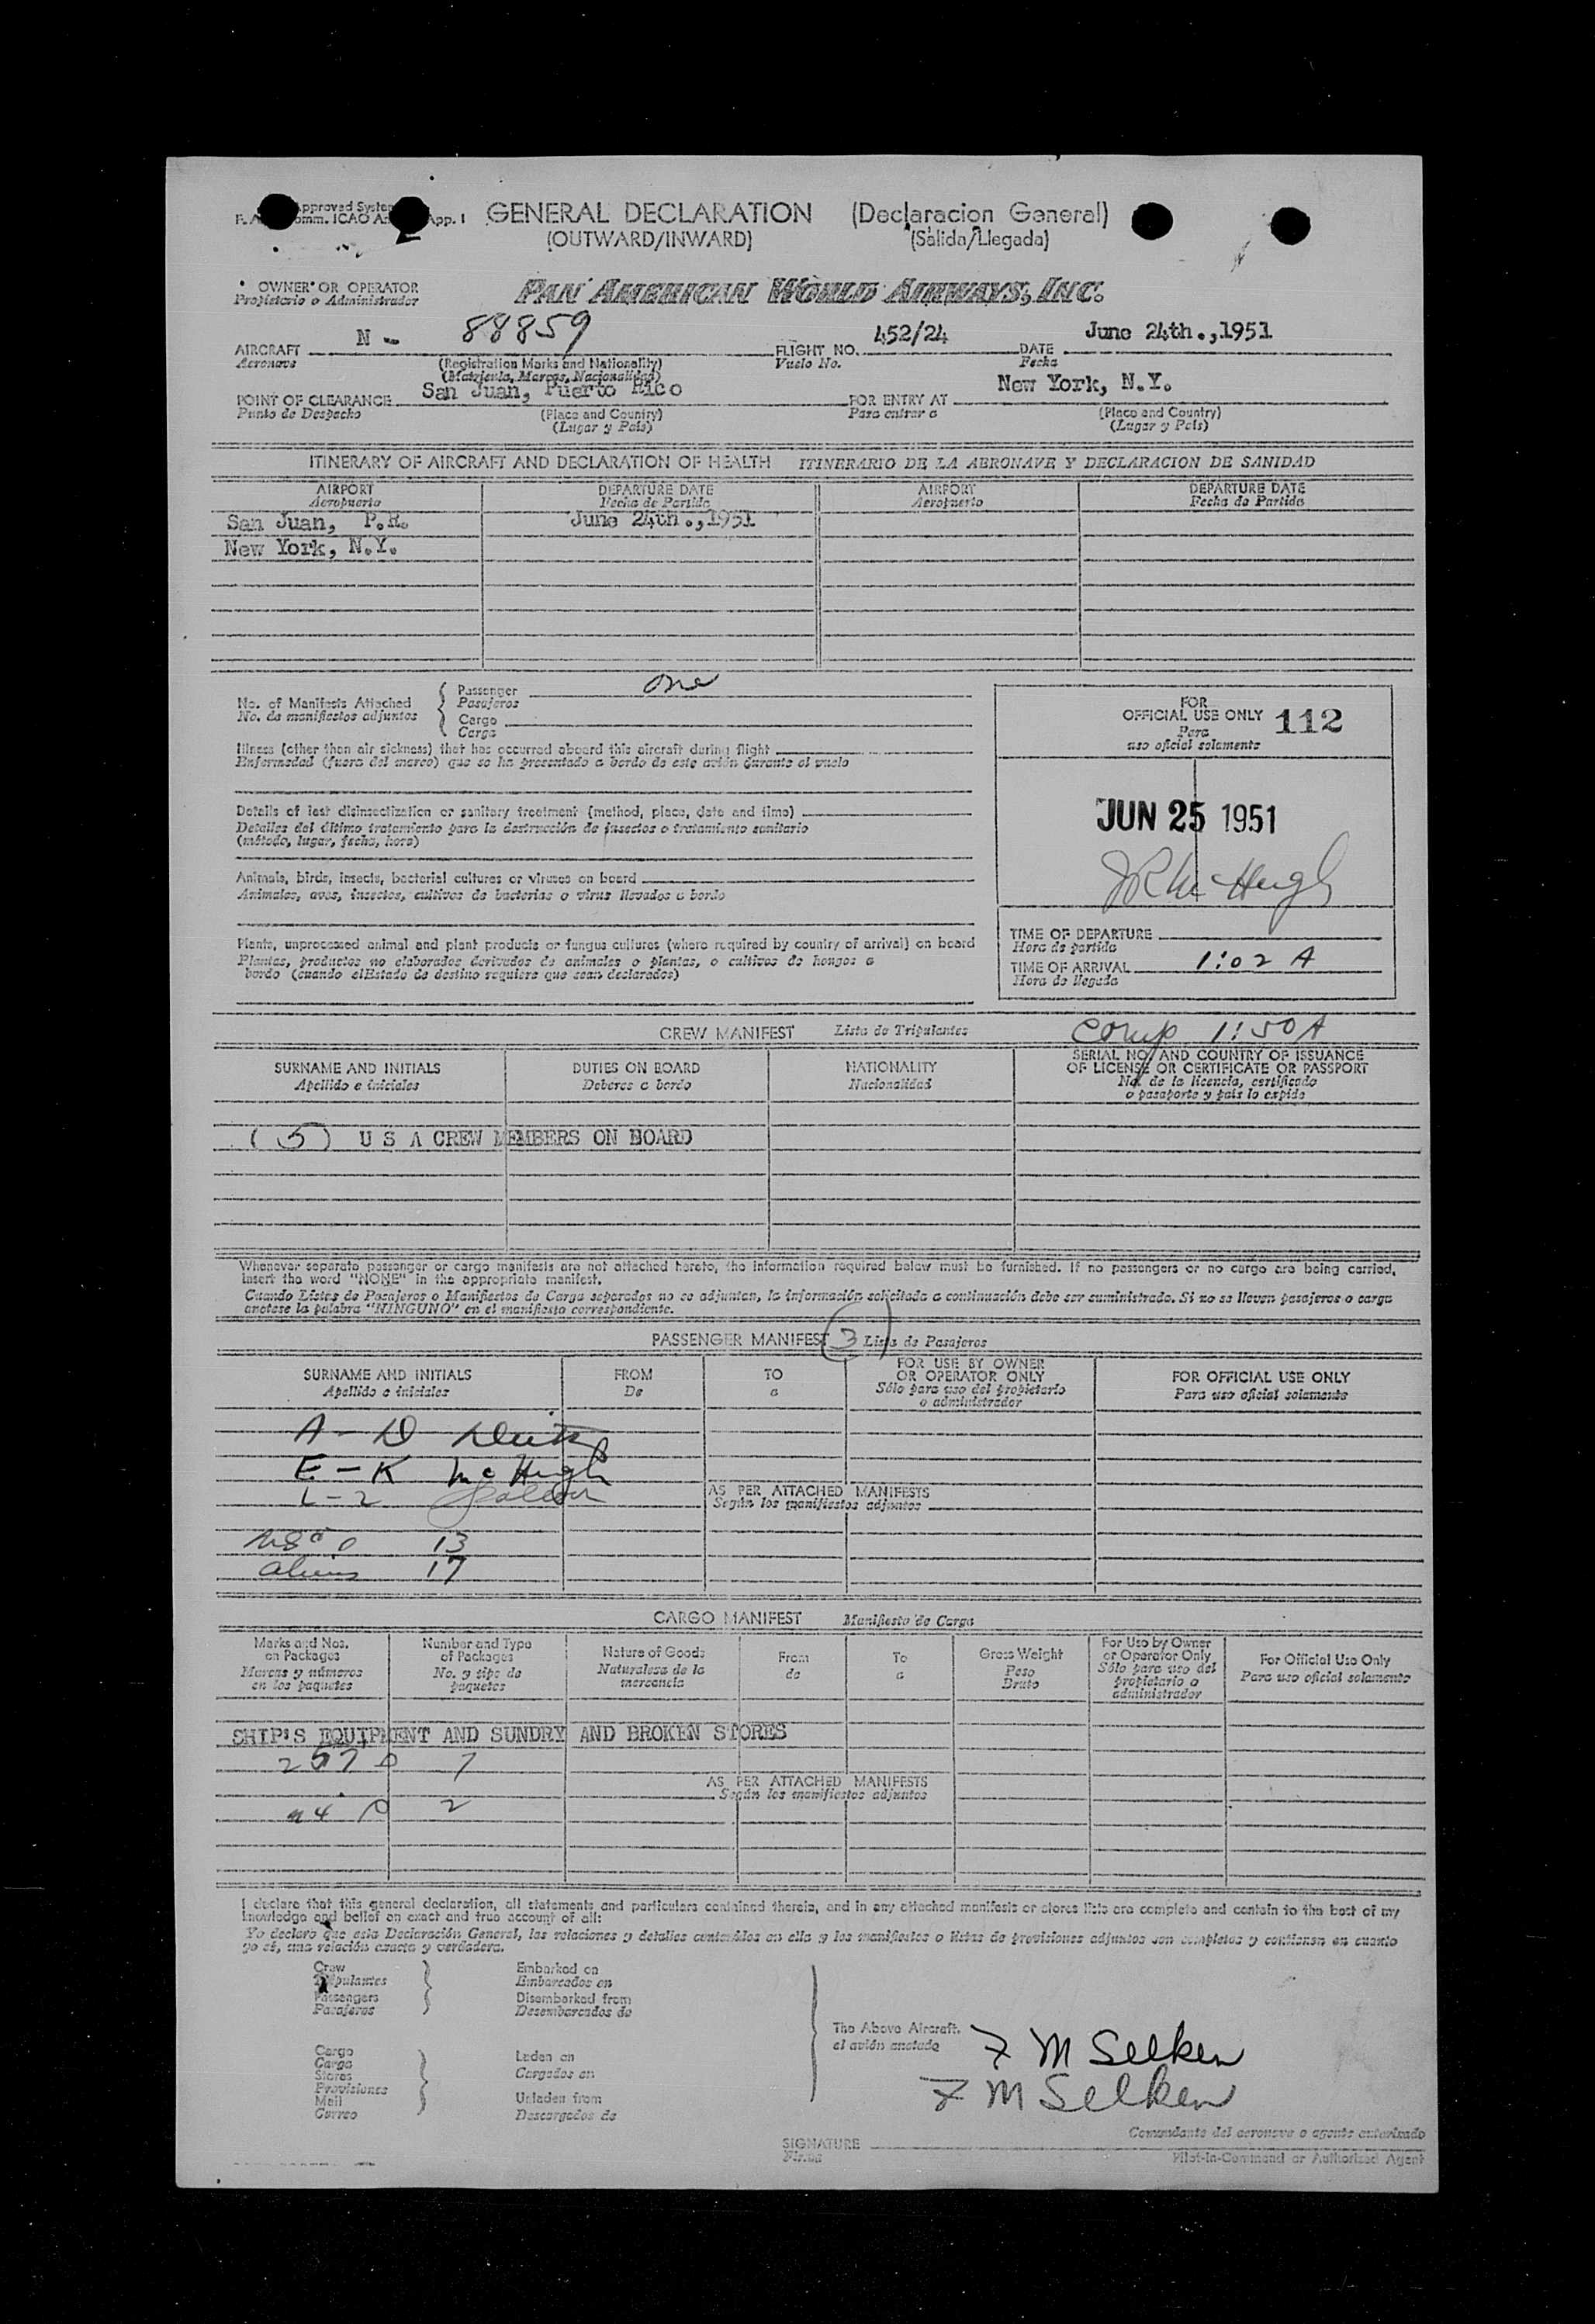 pproved System
F. A. omm. ICAO An App. I
GENERAL DECLARATION (Declaracion General)
(OUTWARD/INWARD) (Salida/Llegada)
OWNER OR OPERATOR
Propietario o Administrador
PAN AMERICAN WORLD AIRWAYS, INC.
AIRCRAFT N - 88859 FLIGHT NO. 452/24 DATE June 24th.,1951
Aeronave (Registration Marks and Nationality) Vuelo No. Fecha
(Matricula, Marcas, Nacionalidad)
POINT OF CLEARANCE San Juan, Puerto Rico FOR ENTRY AT New York, N.Y.
Punto de Despacho (Place and Country) Para entrar a (Place and Country)
(Lugar y País) (Lugar y País)
ITINERARY OF AIRCRAFT AND DECLARATION OF HEALTH ITINERARIO DE LA AERONAVE Y DECLARACION DE SANIDAD
AIRPORT DEPARTURE DATE AIRPORT DEPARTURE DATE
Aeropuerto Fecha de Partida Aeropuerto Fecha de Partida
San Juan, P.R. June 24th.,1951
New York, N.Y.
No. of Manifests Attached
No. de manifiestos adjuntos
Passenger one
Pasajeros
Cargo
Carga
Illness (other than air sickness) that has occurred aboard this aircraft during flight
Enfermedad (fuera del mareo) que se ha presentado a bordo de este avión durante el vuelo
Details of last disinsectization or sanitary treatment (method, place, date and time)
Detalles del último tratamiento para la destrucción de insectos o tratamiento sanitario
(método, lugar, fecha, hora)
Animals, birds, insects, bacterial cultures or viruses on board
Animales, aves, insectos, cultivos de bacterias o virus llevados a bordo
Plants, unprocessed animal and plant products or fungus cultures (where required by country of arrival) on board
Plantas, productos no elaborados derivados de animales o plantas, o cultivos de hongos a
bordo (cuando el Estado de destino requiere que sean declarados)
FOR
OFFICIAL USE ONLY 112
Para
uso oficial solamente
JUN 25 1951
JR McHugh
TIME OF DEPARTURE
Hora de partida
TIME OF ARRIVAL 1:02 A
Hora de llegada
CREW MANIFEST Lista de Tripulantes Comp 1:50 A
SURNAME AND INITIALS DUTIES ON BOARD NATIONALITY SERIAL NO. AND COUNTRY OF ISSUANCE
OF LICENSE OR CERTIFICATE OR PASSPORT
Apellido e iniciales Deberes a bordo Nacionalidad No. de la licencia, certificado
o pasaporte y país lo expide
(5) U S A CREW MEMBERS ON BOARD
Whenever separate passenger or cargo manifests are not attached hereto, the information required below must be furnished. If no passengers or no cargo are being carried,
insert the word "NONE" in the appropriate manifest.
Cuando Listas de Pasajeros o Manifiestos de Carga separados no se adjuntan, la información solicitada a continuación debe ser suministrada. Si no se llevan pasajeros o carga
anotese la palabra "NINGUNO" en el manifiesto correspondiente.
PASSENGER MANIFEST (3) Lista de Pasajeros
SURNAME AND INITIALS FROM TO FOR USE BY OWNER
OR OPERATOR ONLY FOR OFFICIAL USE ONLY
Apellido e iniciales De a Sólo para uso del propietario
o administrador Para uso oficial solamente
A - D
E - K McHugh
L - Z
AS PER ATTACHED MANIFESTS
Según los manifiestos adjuntos
USC 13
aliens 17
CARGO MANIFEST Manifiesto de Carga
Marks and Nos.
on Packages
Marcas y números
en los paquetes
Number and Type
of Packages
No. y tipo de
paquetes
Nature of Goods
Naturaleza de la
mercancia
From
de
To
a
Gross Weight
Peso
Bruto
For Use by Owner
or Operator Only
Sólo para uso del
propietario o
administrador
For Official Use Only
Para uso oficial solamente
SHIP'S EQUIPMENT AND SUNDRY AND BROKEN STORES
AS PER ATTACHED MANIFESTS
Según los manifiestos adjuntos
2
I declare that this general declaration, all statements and particulars contained therein, and in any attached manifests or stores lists are complete and contain to the best of my
knowledge and belief an exact and true account of all:
Yo declaro que esta Declaración General, las relaciones y detalles contenidos en ella y los manifiestos o listas de provisiones adjuntos son completos y contienen en cuanto
yo sé, una relación exacta y verdadera.
Crew
Tripulantes
Passengers
Pasajeros
Embarked on
Embarcados en
Disembarked from
Desembarcados de
Cargo
Carga
Stores
Provisiones
Mail
Correo
Laden on
Cargados en
Unladen from
Descargados de
The Above Aircraft.
el avión anotado
F M Selken
F M Selken
Comandante del aeronave o agente autorizado
SIGNATURE
Firma
Pilot-in-Command or Authorized Agent